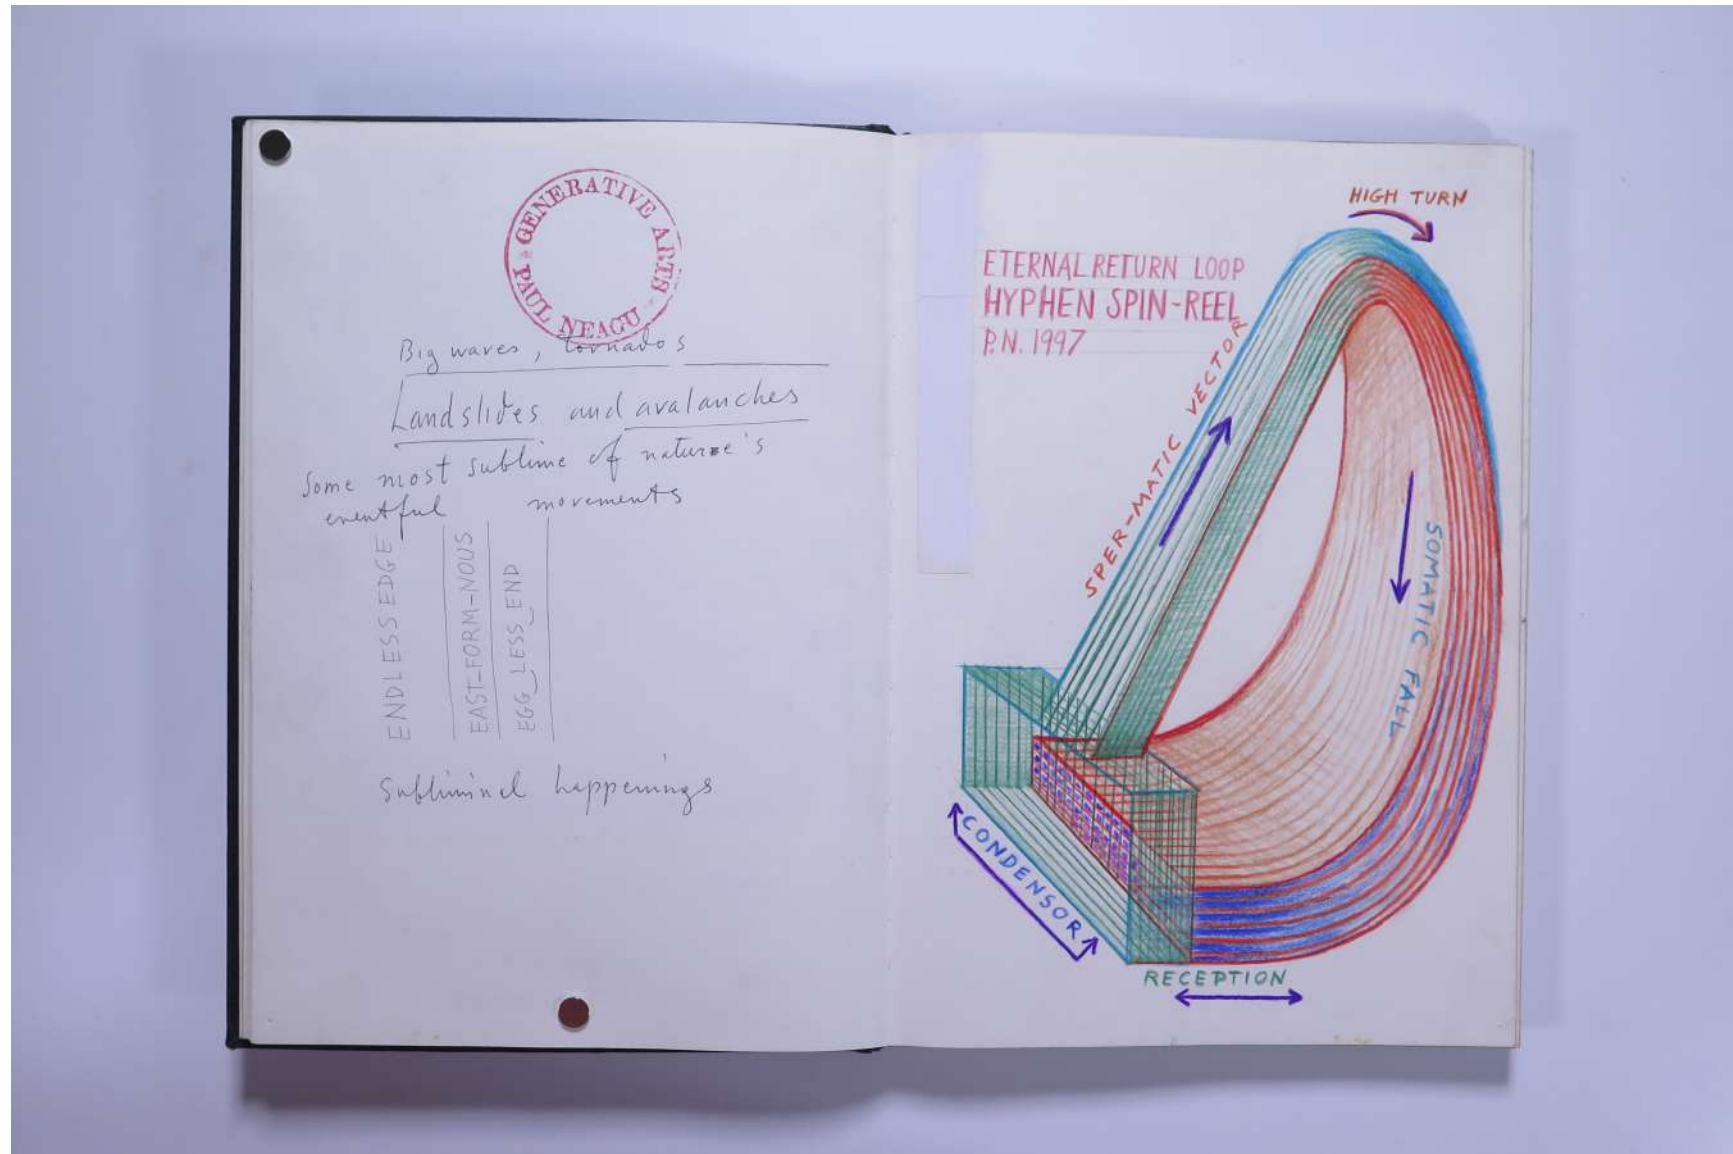 GENERATIVE ARTS
PAUL NEAGU
Big waves, tornados
Landslides and avalanches
Some most sublime of nature's
eventful movements
ENDLESS EDGE
EAST-FORM-NOUS
EGG_LESS_END
Subliminal happenings
HIGH TURN
ETERNAL RETURN LOOP
HYPHEN SPIN-REEL
P.N. 1997
SPER-MATIC VECTOR
SOMATIC FALL
CONDENSOR
RECEPTION